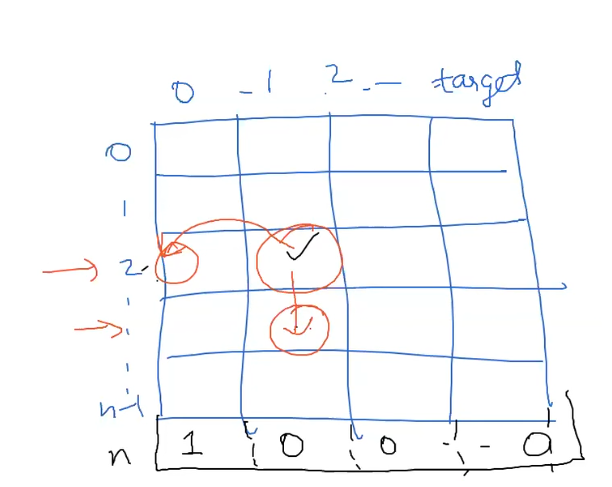 0 - 1 2 - - target
0
1
2
n-1
n 1 0 0 - - 0